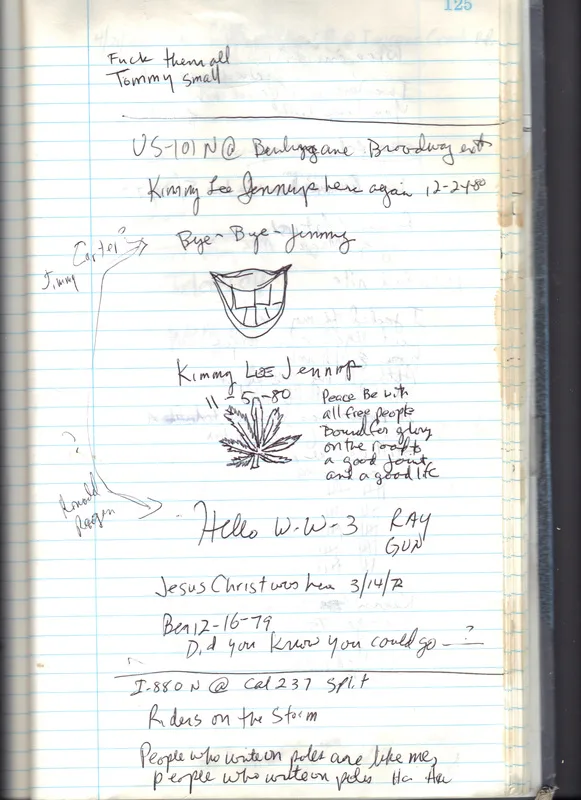 125
Fuck them all
Tommy small
US-101 N @ Broadway exit
Kimmy Lee Jennings here again 12-24-80
Bye-Bye-Jimmy
Carter?
Jimmy
Kimmy LEE Jennings
11-5-80
Peace Be with
all free people
Bound for glory
on the road to
a good joint
and a good life
?
Ronald
Reagen
Hello W-W-3 RAY
GUN
Jesus Christ was here 3/14/72
Ben 12-16-79
Did you know you could go - ?
I-880 N @ Cal 237 split
Riders on the Storm
People who write on poles are like me,
people who write on poles Ha Ha